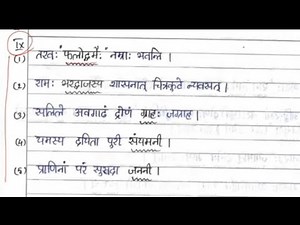 IX
(1) तरवः फलोद्गमैः नम्राः भवन्ति ।
(2) रामः भरद्वाजस्य शासनात् चित्रकुटे न्यवसत् ।
(3) सलिले अवगाढं द्रोणं ग्राहः जग्राह ।
(4) यमस्य दयिता पुरी संयमनी ।
(5) प्राणिनां परं सुखदा जननी ।